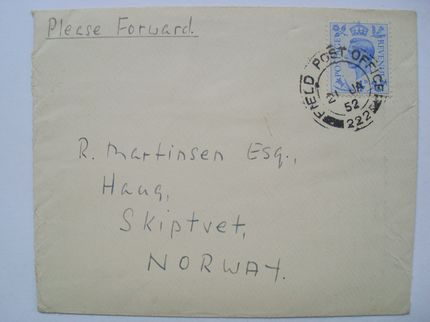 Please Forward.
POSTAGE REVENUE
FIELD POST OFFICE
21 JA
52
222
R. Martinsen Esq.,
Haug,
Skiptvet,
NORWAY.